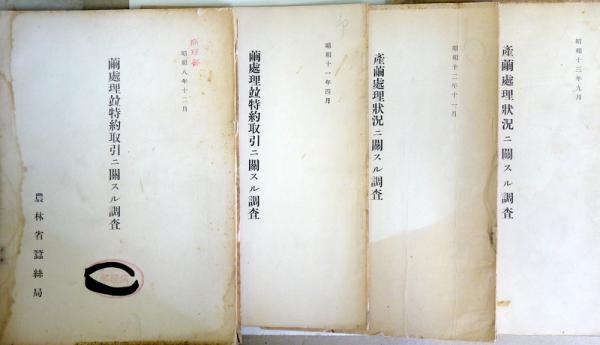 昭和八年十二月
繭處理竝特約取引ニ關スル調査
農林省蠶絲局
昭和十一年四月
繭處理竝特約取引ニ關スル調査
昭和十二年十一月
產繭處理狀況ニ關スル調査
昭和十三年九月
產繭處理狀況ニ關スル調査